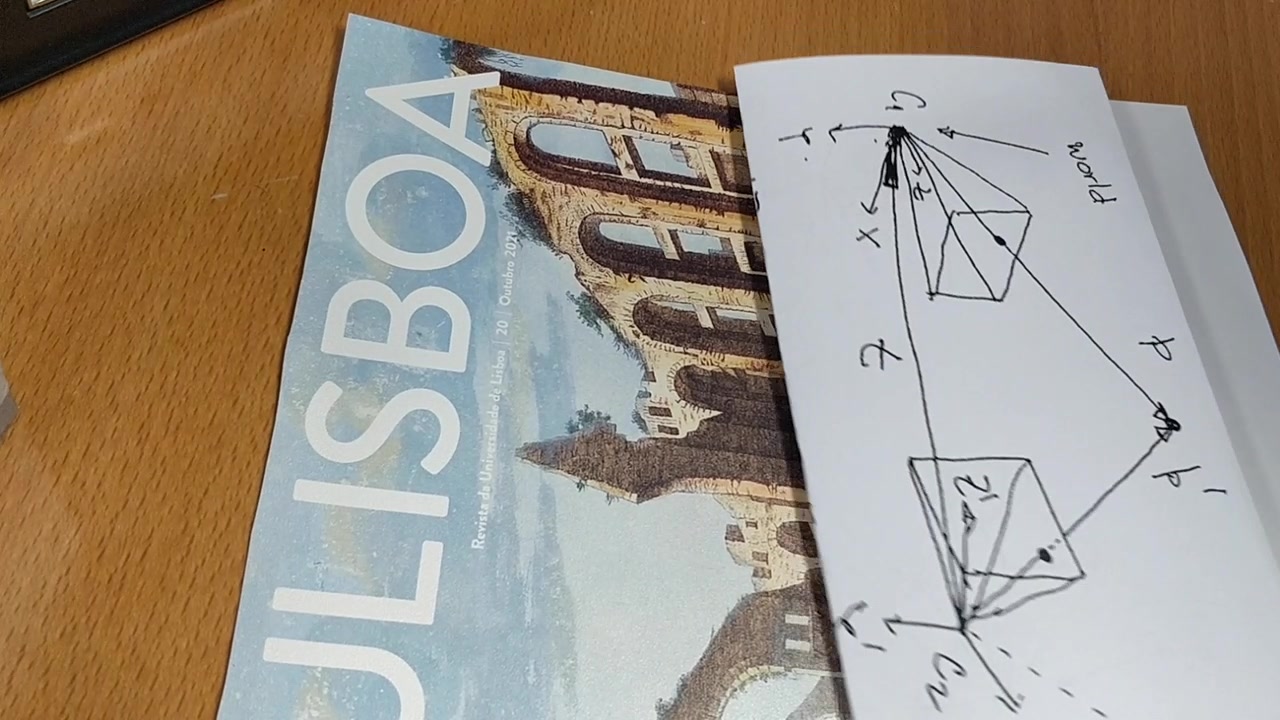 ULISBOA
Revista da Universidade de Lisboa | 20 | Outubro 2021
C1
world
Y
z
x
t
P
P'
z'
y'
C2